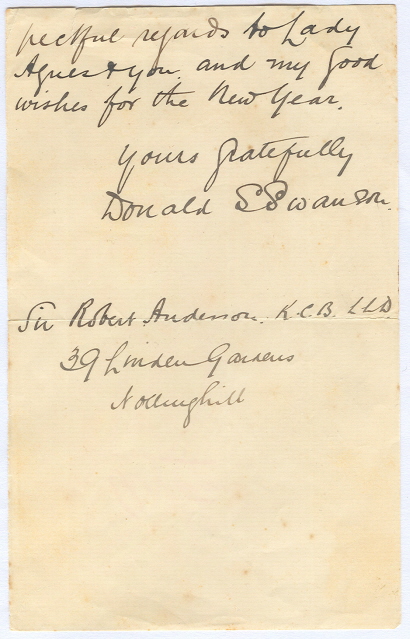 pectful regards to Lady
Agnes & you. and my good
wishes for the New Year.
Yours gratefully
Donald S Swanson.
Sir Robert Anderson. K.C.B. LLD.
39 Linden Gardens
Nottinghill